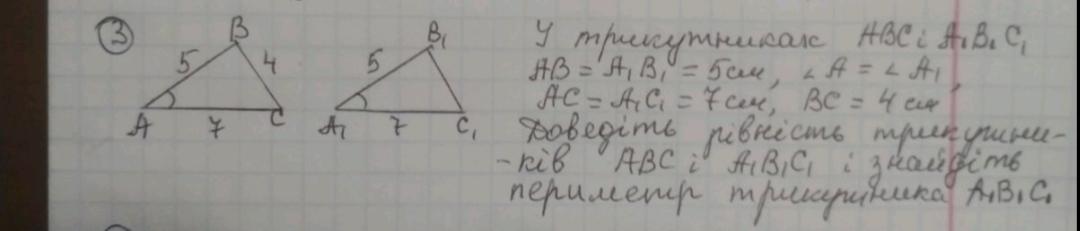 3
B
5
4
A
7
C
B₁
5
A₁
7
C₁
У трикутниках ABC і A₁B₁C₁
AB = A₁B₁ = 5 см, ∠A = ∠A₁,
AC = A₁C₁ = 7 см, BC = 4 см
Доведіть рівність трикутни-
-ків ABC і A₁B₁C₁ і знайдіть
периметр трикутника A₁B₁C₁